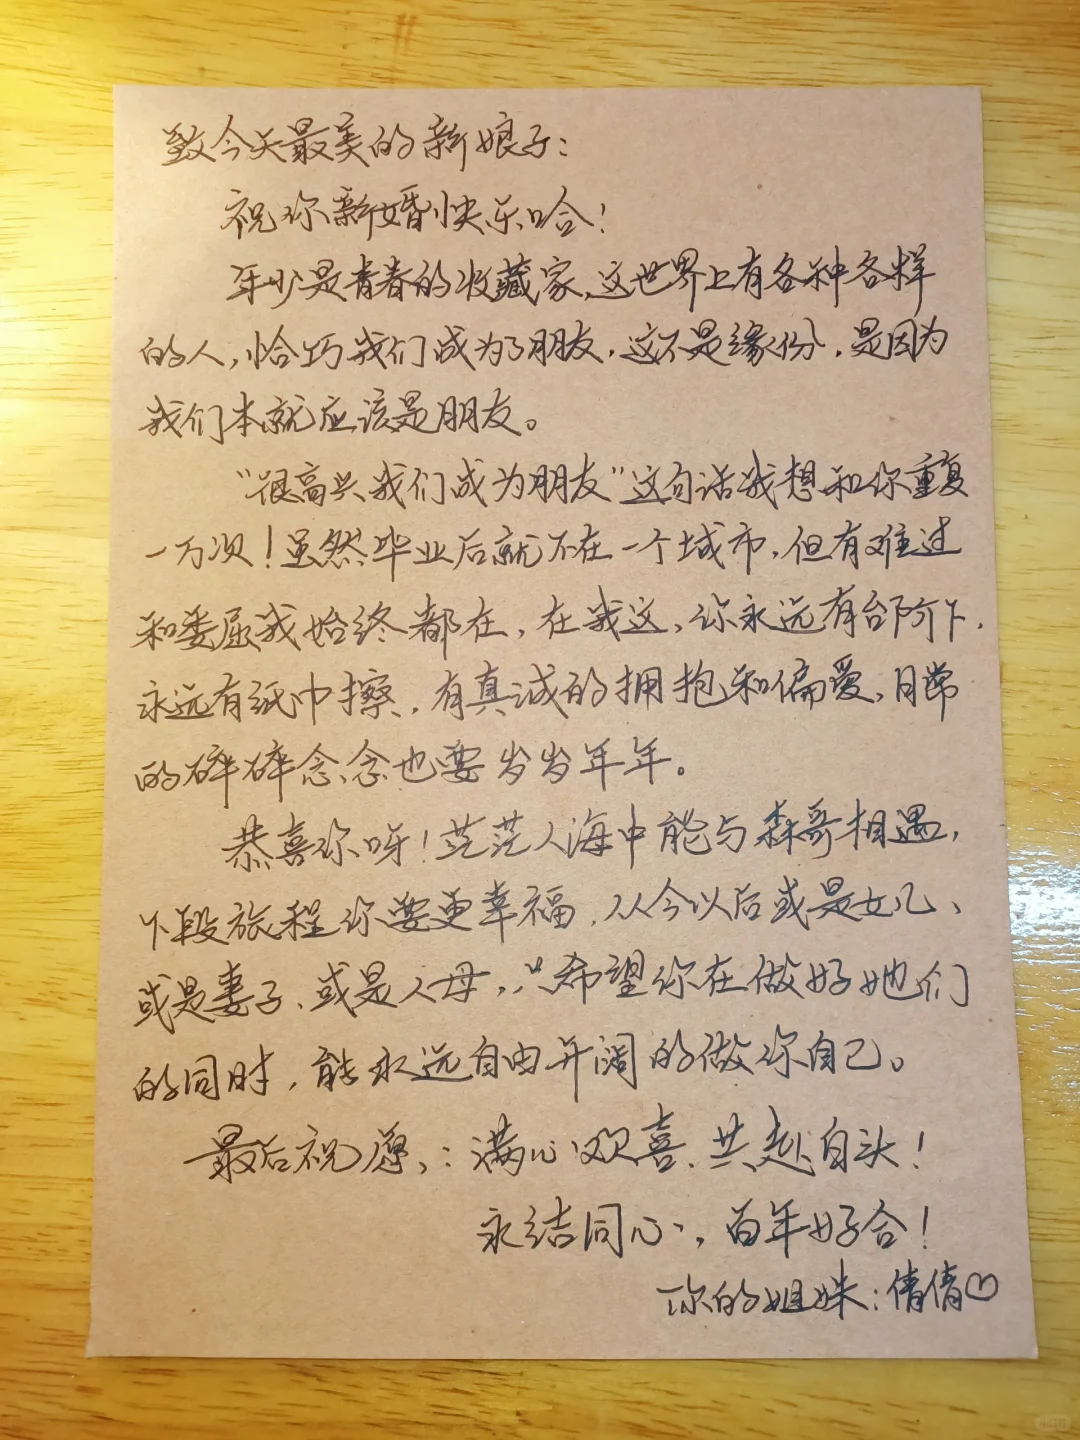 致今天最美的新娘子：
祝你新婚快乐哈！
年少是青春的收藏家，这世界上有各种各样
的人，恰巧我们成为了朋友，这不是缘份，是因为
我们本就应该是朋友。
“很高兴我们成为朋友”这句话我想和你重复
一万次！虽然毕业后就不在一个城市，但有难过
和委屈我始终都在，在我这，你永远有台阶下，
永远有纸巾擦，有真诚的拥抱和偏爱，日常
的碎碎念念也要岁岁年年。
恭喜你呀！茫茫人海中能与森哥相遇，
下段旅程你要更幸福，从今以后或是女儿、
或是妻子、或是人母，只希望你在做好她们
的同时，能永远自由开阔的做你自己。
最后祝愿：满心欢喜、共赴白头！
永结同心，百年好合！
你的姐妹：倩倩♡